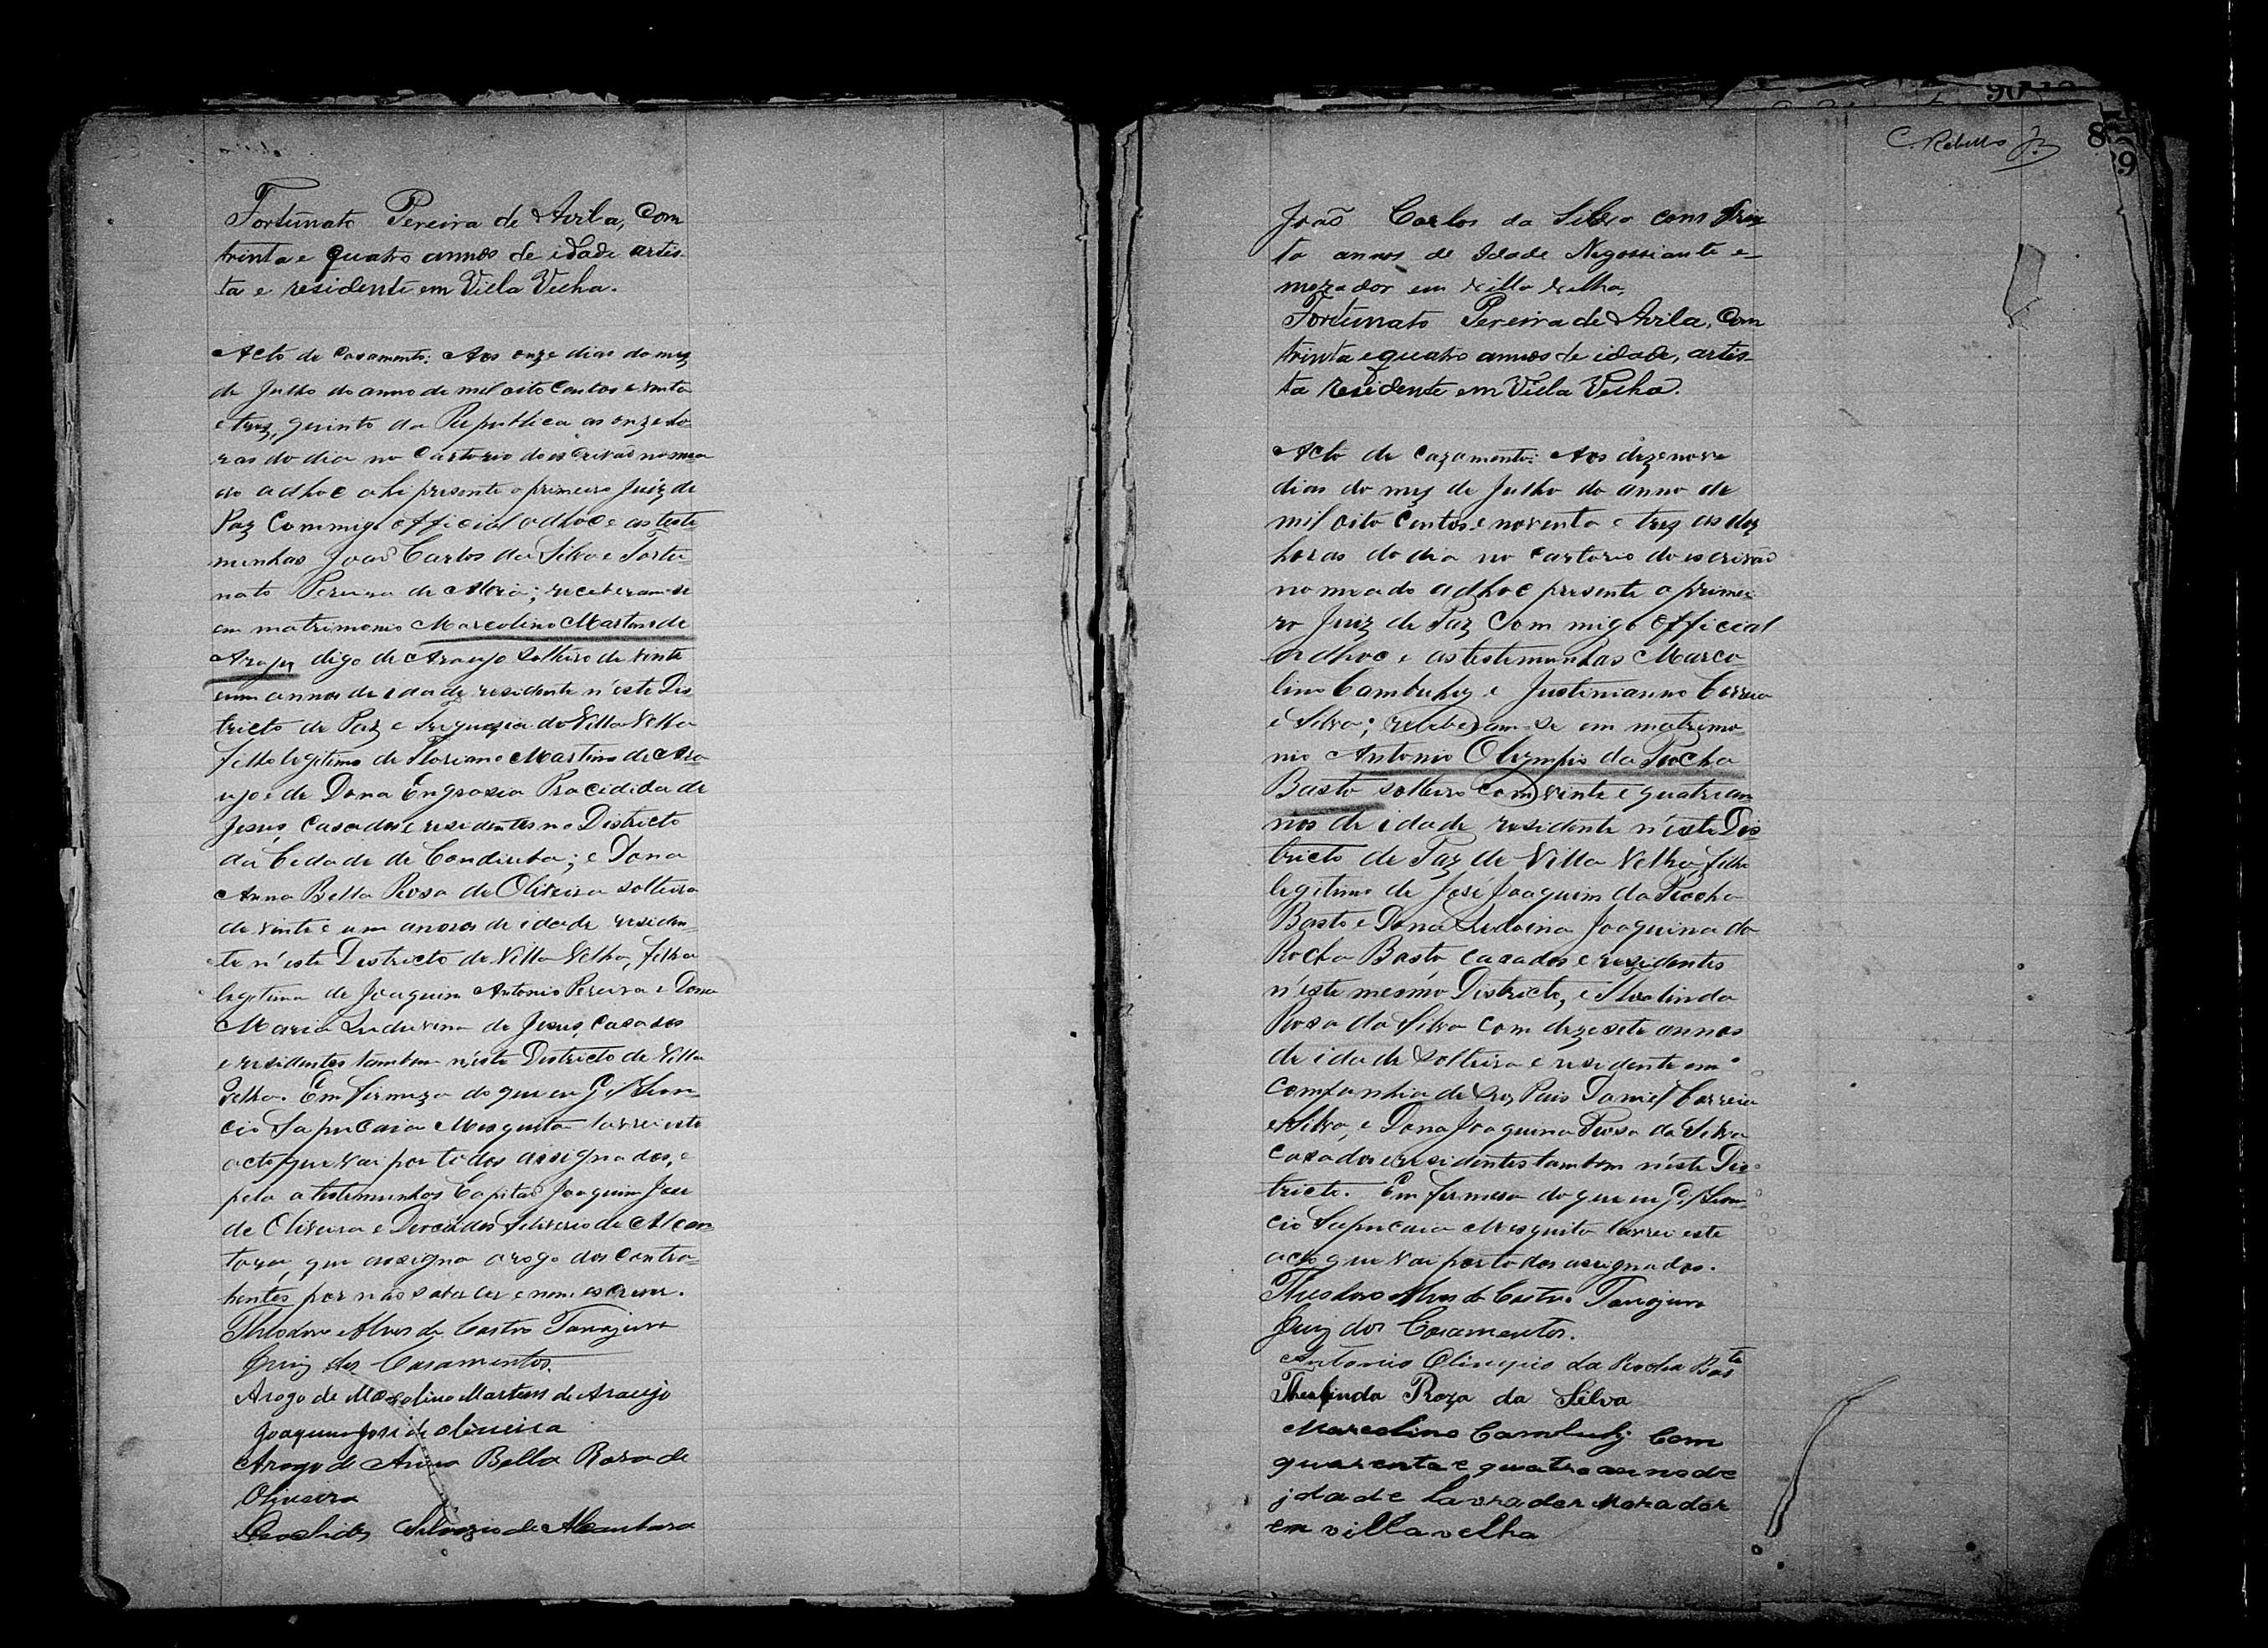 Fortunato Pereira de Avila, Com
trinta e quatro annos de idade artis-
ta e residente em Villa Velha.
Acto de Casamento: Aos onze dias do mez
de Julho do anno de mil oito Centos e noventa
e trez, quinto da Republica as onze ho-
ras do dia no Cartorio do escrivão nomea-
do adhoc ahi presente o primeiro Juiz de
Paz Commigo official adhoc e as teste-
munhas João Carlos da Silva e Fortu-
nato Pereira de; receberam-se
em matrimonio Marcolino Martins de
digo de Araujo solteiro de vinte
e um annos de idade residente n'este Dis
tricto de Paz e freguezia de Villa Velha
filho legitimo de Floriano Martins de Ara
ujo e de Dona Engracia Placidida de
Jesus, Casados e residentes no Districto
da Cidade de Condeuba; e Dona
Anna Bella Rosa de Oliveira solteira
de vinte e um annos de idade residen-
te n'este Districto de Villa Velha, filha
legitima de Joaquim Antonio Pereira e Dona
Maria Luduvina de Jesus, Casados
e residentes tambem n'este Districto de Villa
Velha. Em firmeza do que eu
Sapucaia Mesquita lavrei este
acto que vai por todos assignados, e
pela a testemunhas Capitão Joaquim José
de Oliveira e Silverio de Alcan
tara, que assigna a rogo dos Contra-
hentes por não saber ler e nem escrever.
Theodoro Alves de Castro Tanajura
Juiz dos Casamentos.
Arogo de Marcolino Martins de Araujo
Joaquim José de oliveira
Arogo de Anna Bella Rosa de
Oliveira
Silverio de Alcantara
C. Rebello Jr.
8
João Carlos da Silva com trin
ta annos de Idade Negossiante e
morador em villa velha,
Fortunato Pereira de Avila, Com
trinta e quatro annos de idade, artis-
ta residente em Villa Velha.
Acto de Cazamento: Aos dezenove
dias do mez de Julho do anno de
mil oito Centos e noventa e trez as dez
horas do dia no Cartorio do escrivão
nomeado adhoc presente o primei-
ro Juiz de Paz Commigo official
adhoc e as testemunhas Marco-
lino Cambuhy e Justinianno Correia
e Silva; receberam-se em matrimo-
nio Antonio Olympio da Rocha
Basto solteiro Com vinte e quatro an
nos de idade residente n'este Dis
tricto de Paz de Villa Velha, filho
legitimo de José Joaquim da Rocha
Basto e Dona Ludovina Joaquina da
Rocha Basto casados e residentes
n'este mesmo Districto, e
Rosa da Silva com dezesete annos
de idade solteira e residente em
companhia de seus Pais Daniel Correia
e Silva, e Dona Joaquina Rosa da Silva
casados e residentes tambem n'este Dis-
tricto. Em firmesa do que eu
Sapucaia Mesquita lavrei este
acto que vai por todos assignados.
Theodoro Alves de Castro Tanajura
Juiz dos Casamentos.
Antonio Olimpio da Rocha Basto
Roza da Silva
Marcolino Cambuhy Com
quarenta e quatro annos de
idade lavrador morador
em villa velha